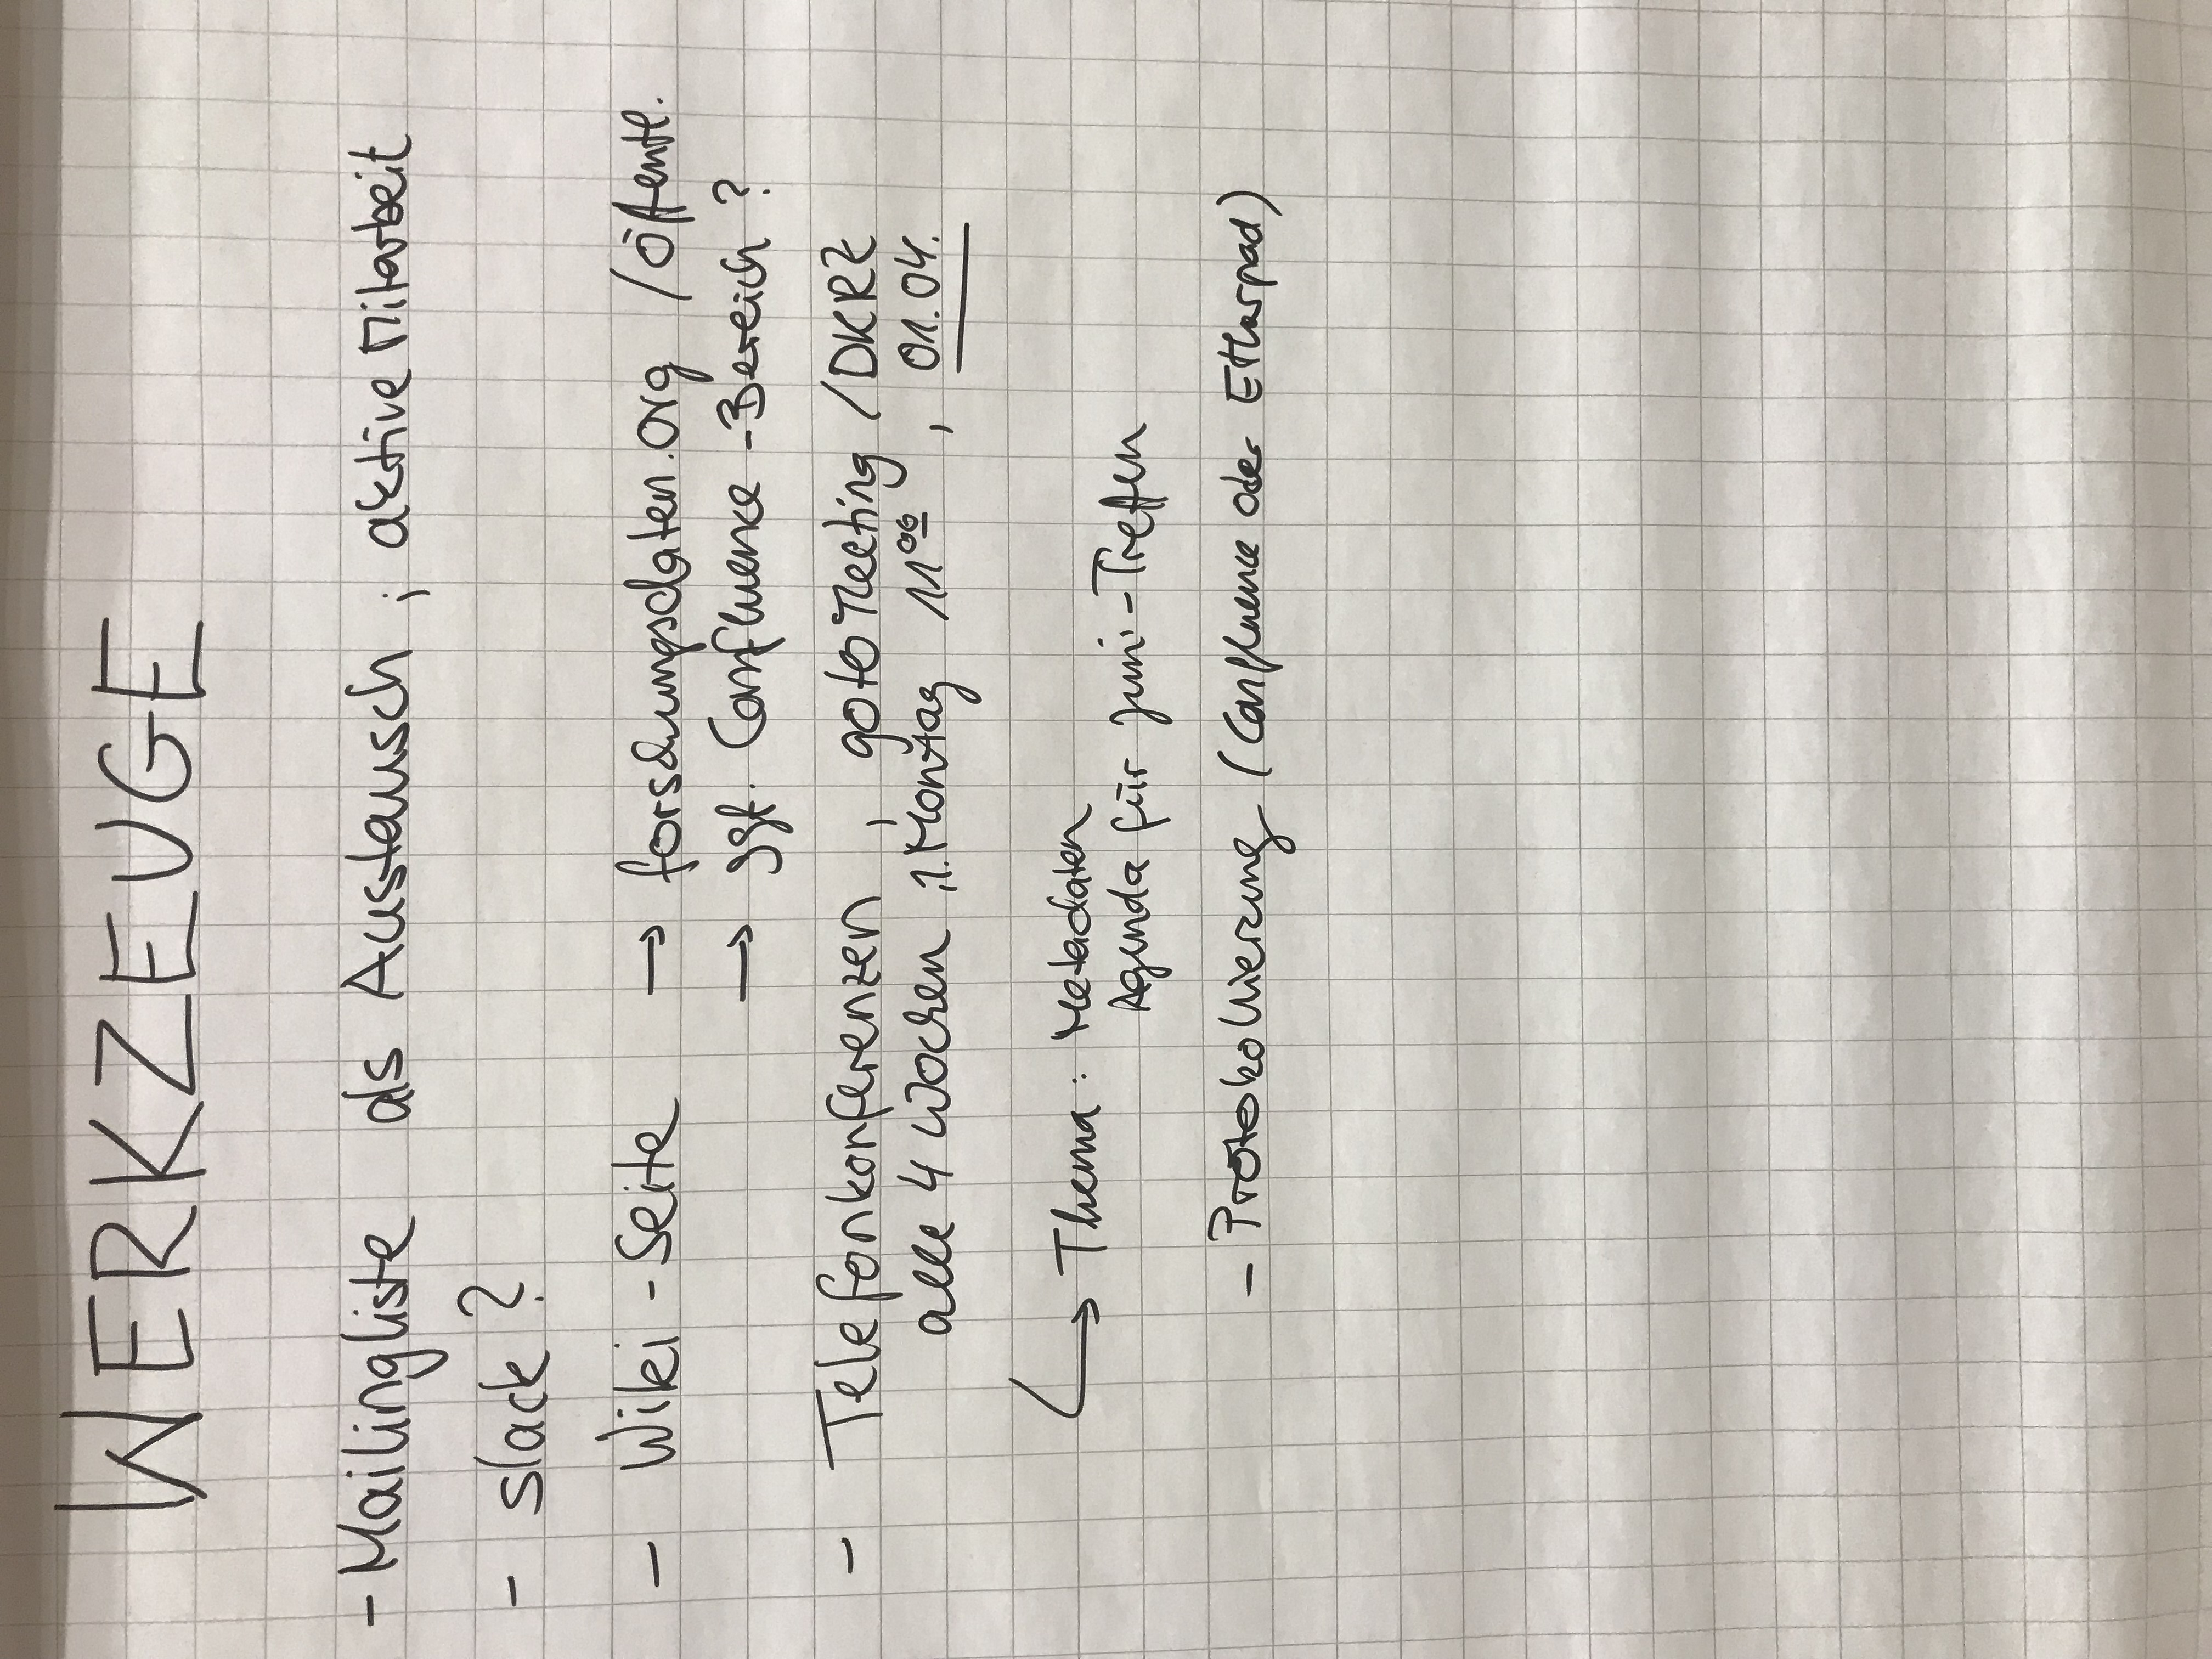 WERKZEUGE
- Mailingliste als Austausch ; aktive Mitarbeit
- Slack?
- Wiki-Seite → forschungsdaten.org / öffentl.
→ ggf. Confluence-Bereich ?
- Telefonkonferenzen , goto Meeting / DKRZ
alle 4 Wochen ; 1. Montag 11⁰⁰ , 01.04.
↳ Thema: Metadaten
Agenda für Juni-Treffen
- Protokollierung (Confluence oder Etharpad)